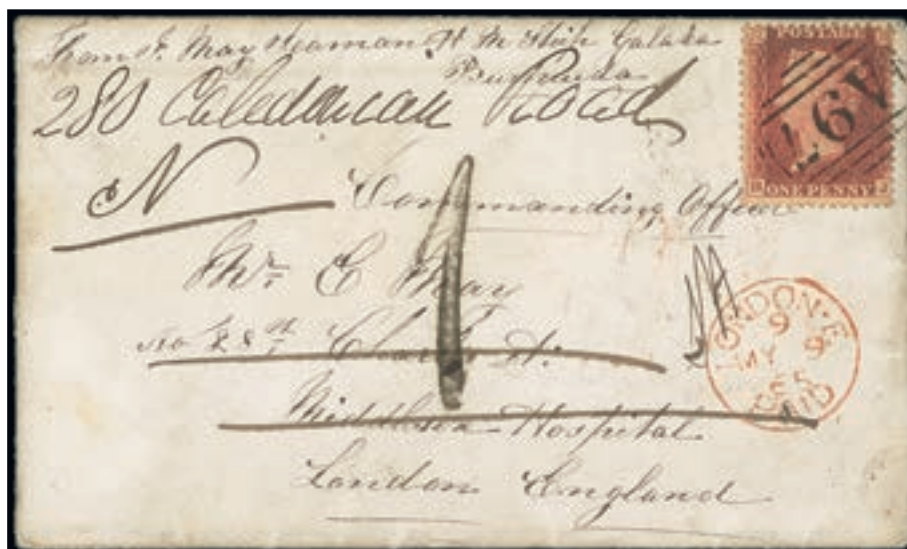 From Jn. May Seaman H M Ship Galatea
Bermuda
280 Caledonian Road
N
Commanding Officer
Mr. C May
No 28
Charles St.
Middlesex Hospital
London England
POSTAGE
ONE PENNY
A97
LONDON·E
9
MY 9
PAID
1